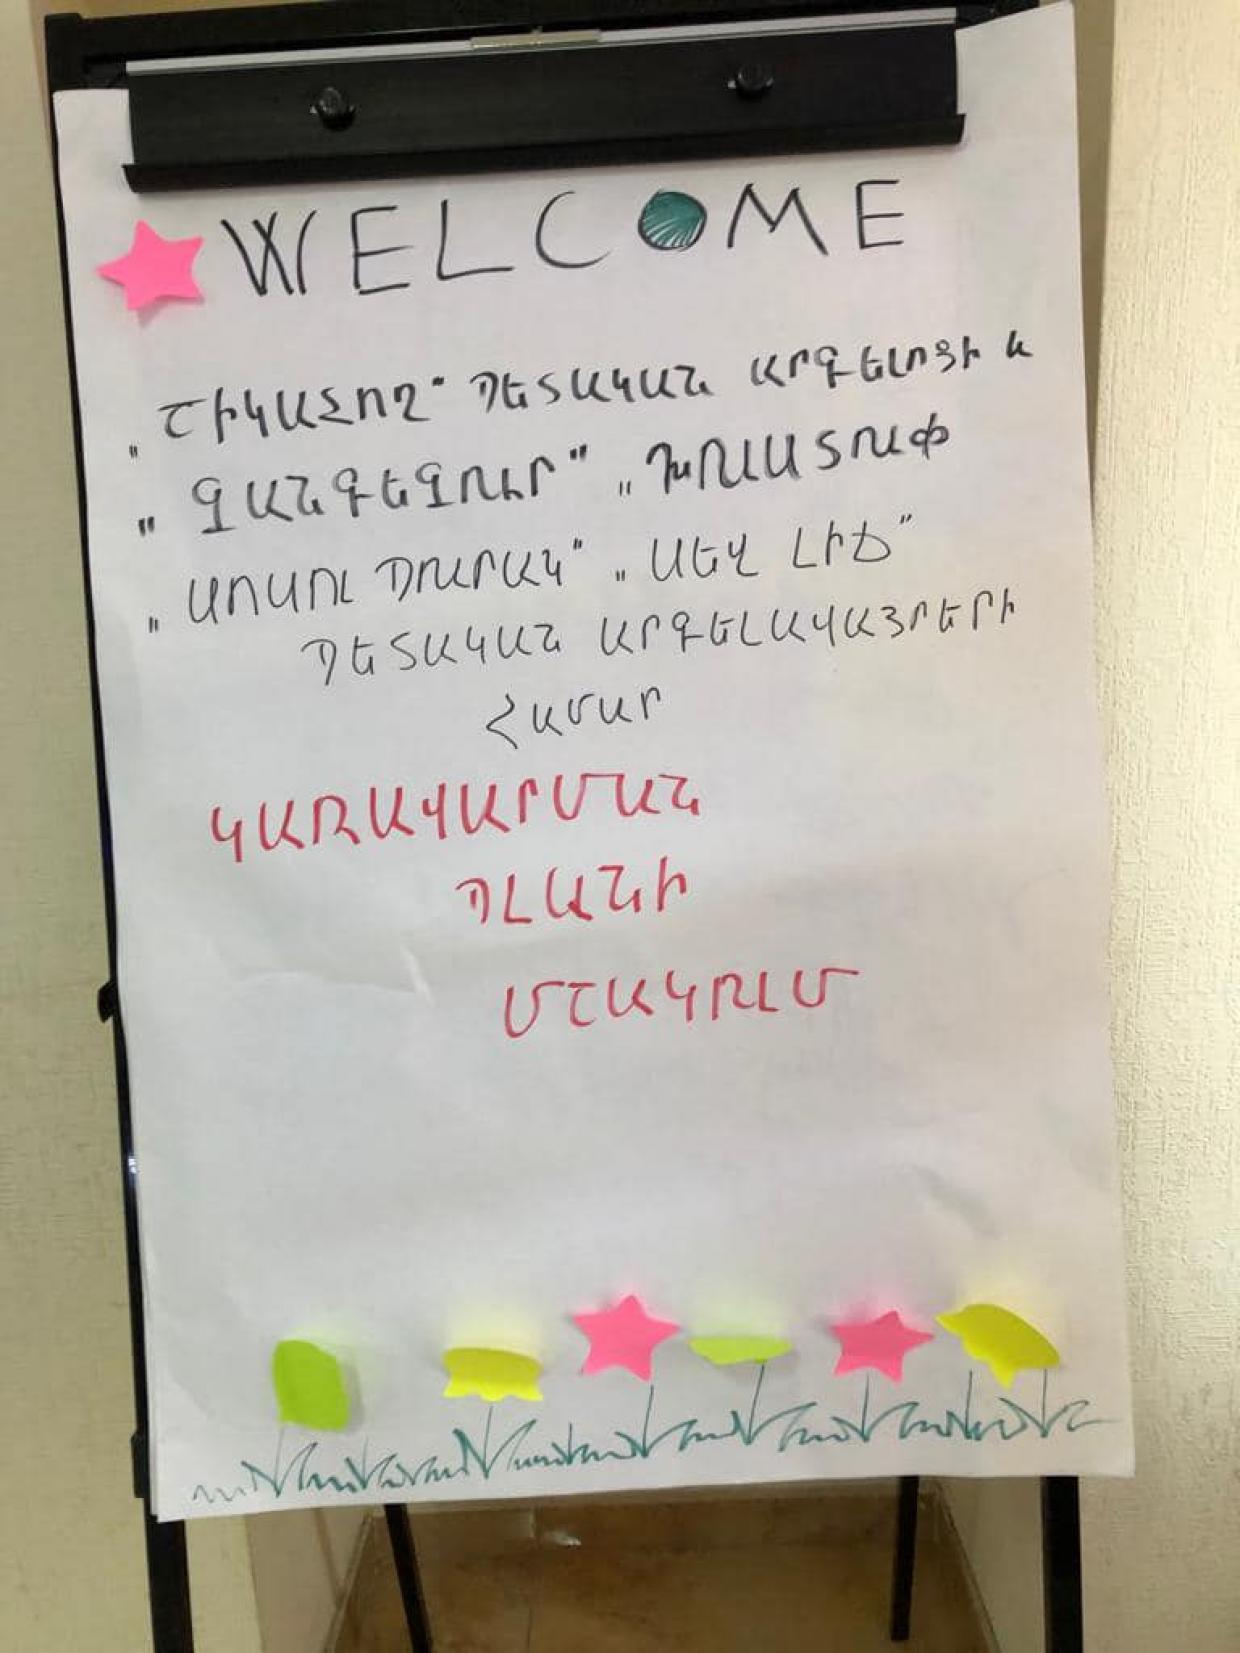 WELCOME
„ՇԻԿԱՀՈՂ" ՊԵՏԱԿԱՆ ԱՐԳԵԼՈՑԻ և
„ԶԱՆԳԵԶՈՒՐ" „ԽՈՒՍՏՈՒՓ
„ՍՈՍՈՒ ՊՈՒՐԱԿ" „ՍԵՎ ԼԻՃ"
ՊԵՏԱԿԱՆ ԱՐԳԵԼԱՎԱՅՐԵՐԻ
ՀԱՄԱՐ
ԿԱՌԱՎԱՐՄԱՆ
ՊԼԱՆԻ
ՄՇԱԿՈՒՄ